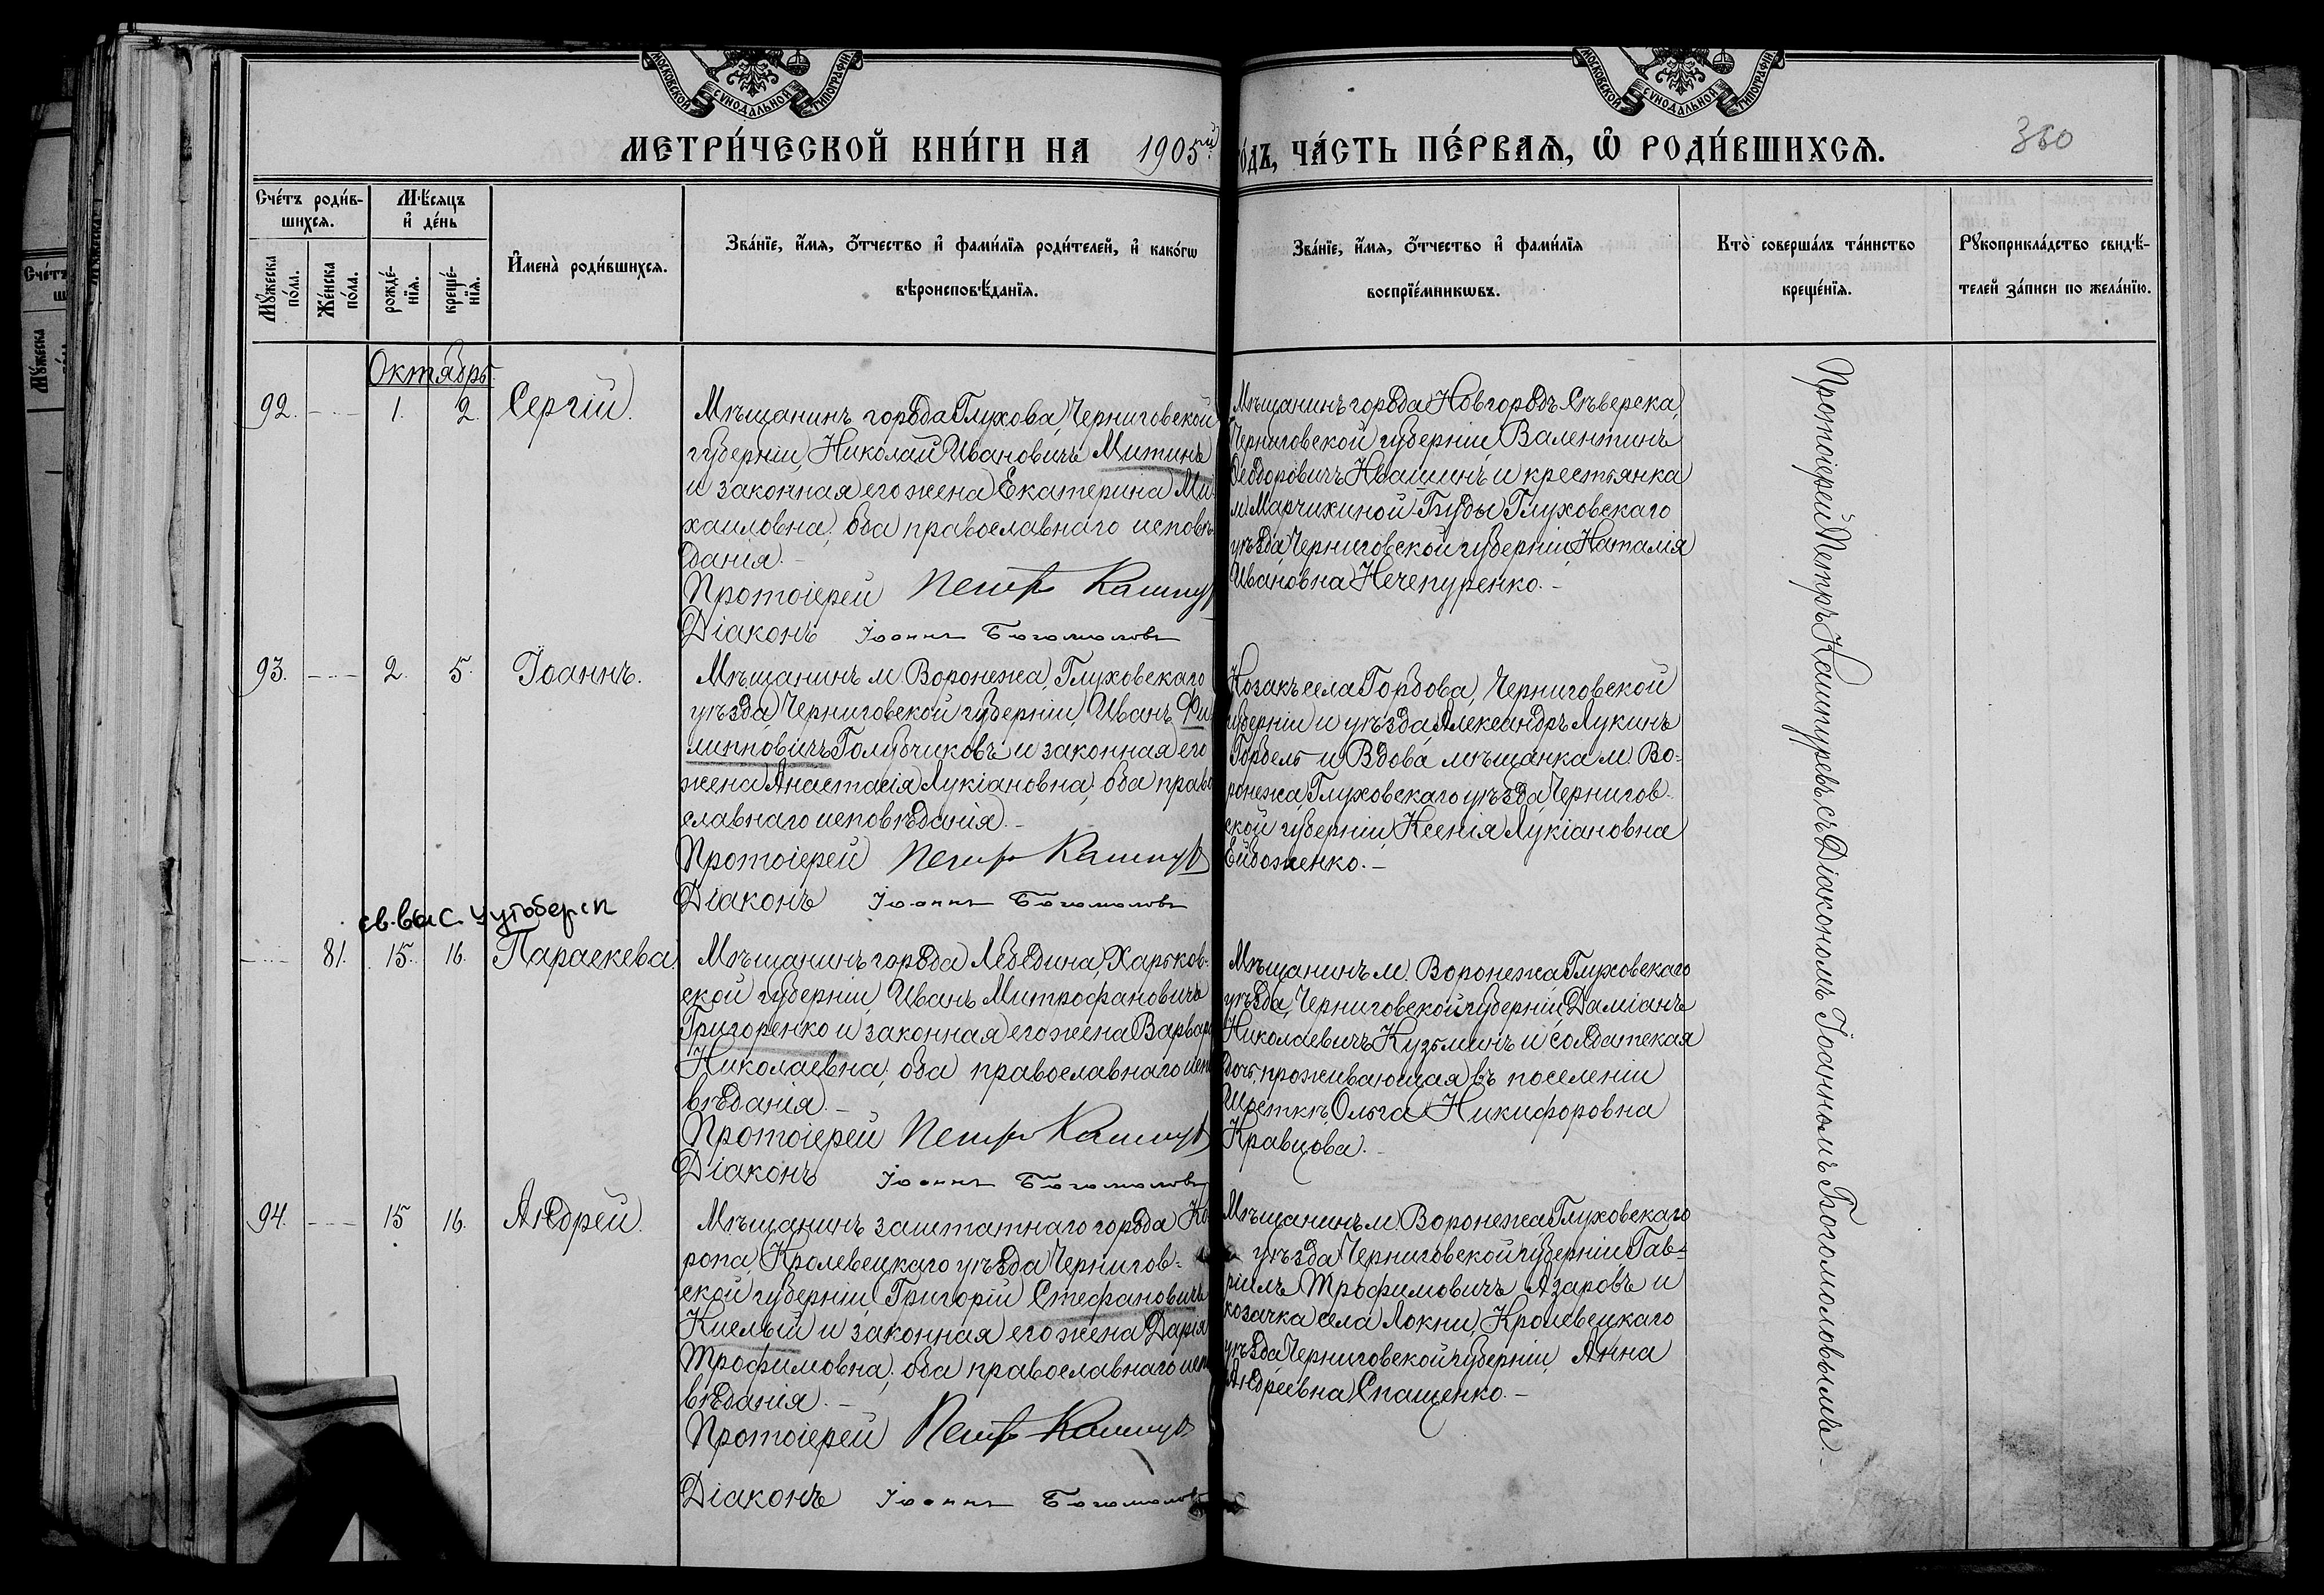 МОСКОВСКОЙ СѴНОДАЛЬНОЙ ТИПОГРАФІИ.
МОСКОВСКОЙ СѴНОДАЛЬНОЙ ТИПОГРАФІИ.
МЕТРИ́ЧЕСКОЙ КНИ́ГИ НА 1905ый
ГО́ДЪ, ЧА́СТЬ ПЕ́РВАѦ, Ѡ РОДИ́ВШИХСѦ.
360
Сче́тъ роди́в-
шихсѧ.
Мѣ́сѧцъ
и де́нь
Мꙋ́жеска
по́ла.
Же́нска
по́ла.
рожде́-
нїѧ.
креще́-
нїѧ.
Имена̀ роди́вшихсѧ.
Зва́нїе, и́мѧ, о́тчество и фами́лїѧ роди́телей, и како́гѡ
вѣроисповѣ́данїѧ.
Зва́нїе, и́мѧ, о́тчество и фами́лїѧ
воспрїе́мникѡвъ.
Кто̀ соверша́лъ та́инство
креще́нїѧ.
Рꙋкоприкла́дство свидѣ́-
телей за́писи по жела́нїю.
Октябрь.
92. 1. 2. Сергій.
Мѣщанинъ города Глухова, Черниговской
губерніи, Николай Ивановичъ Митинъ
и законная его жена Екатерина Ми-
хаиловна; оба православнаго исповѣ-
данія. –
Протоіерей Петръ Кашпур
Діаконъ Іоаннъ Богомоловъ
Мѣщанинъ города Новгородъ-Сѣверска,
Черниговской губерніи, Валентинъ
Ѳеодоровичъ Ивашинъ и крестьянка
м Марчихиной Буды Глуховскаго
уѣзда Черниговской губерніи, Наталія
Ивановна Нечепуренко. –
93. 2. 5. Іоаннъ.
Мѣщанинъ м Воронежа, Глуховскаго
уѣзда Черниговской губерніи, Иванъ Фи-
липповичъ Голубчиковъ и законная его
жена Анастасія Лукіановна; оба право
славнаго исповѣданія. –
Протоіерей Петръ Кашпур
Діаконъ Іоаннъ Богомоловъ
Козакъ села Горбова, Черниговской
губерніи и уѣзда, Александръ Лукинъ
Горбель и Вдова мѣщанка м. Во-
ронежа, Глуховскаго уѣзда, Чернигов-
ской губерніи, Ксенія Лукіановна
Евдоженко. –
св. выс.
81. 15. 16. Параскева.
Мѣщанинъ города Лебедина, Харьков-
ской губерніи, Иванъ Митрофановичъ
Григоренко и законная его жена Варвара
Николаевна; оба православнаго испо
вѣданія. –
Протоіерей Петръ Кашпур
Діаконъ Іоаннъ Богомоловъ
Мѣщанинъ м. Воронежа Глуховскаго
уѣзда, Черниговской губерніи, Даміанъ
Николаевичъ Кузьминъ и солдатская
дочь, проживающая въ поселеніи
Шостки, Ольга Никифоровна
Кравцова. –
94. 15 16. Андрей.
Мѣщанинъ заштатнаго города Ко
ропа, Кролевецкаго уѣзда Чернигов-
ской губерніи, Григорій Стефановичъ
Кислый и законная его жена Дарія
Трофимовна; оба православнаго испо
вѣданія. –
Протоіерей Петръ Кашпур
Діаконъ Іоаннъ Богомоловъ
Мѣщанинъ м. Воронежа, Глуховскаго
уѣзда Черниговской губерніи, Гав-
ріилъ Трофимовичъ Азаровъ и
козачка села Локни, Кролевецкаго
уѣзда Черниговской губерніи, Анна
Андреевна Спащенко. –
Протоіерей Петръ Кашпуревъ, съ Діакономъ Іоанномъ Богомоловымъ. –